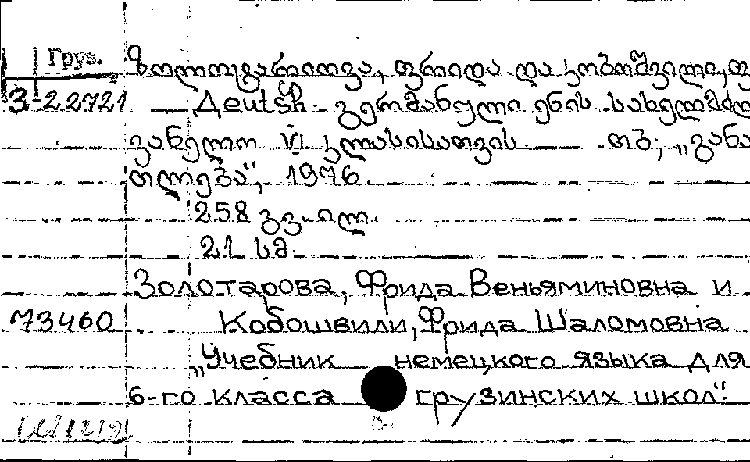 Груз.
ზოლოტარიოვა, ფრიდა და კობოშვილი, ფ
3-22721 Deutsh - გერმანული ენის სახელმძღ
ვანელო VI კლასისათვის თბ., „განა
თლება“, 1976.
258 გვ. ილ.
21 სმ.
Золотарова, Фрида Веньяминовна и
73460 Кобошвили, Фрида Шаломовна
„Учебник немецкого языка для
6-го класса грузинских школ“.